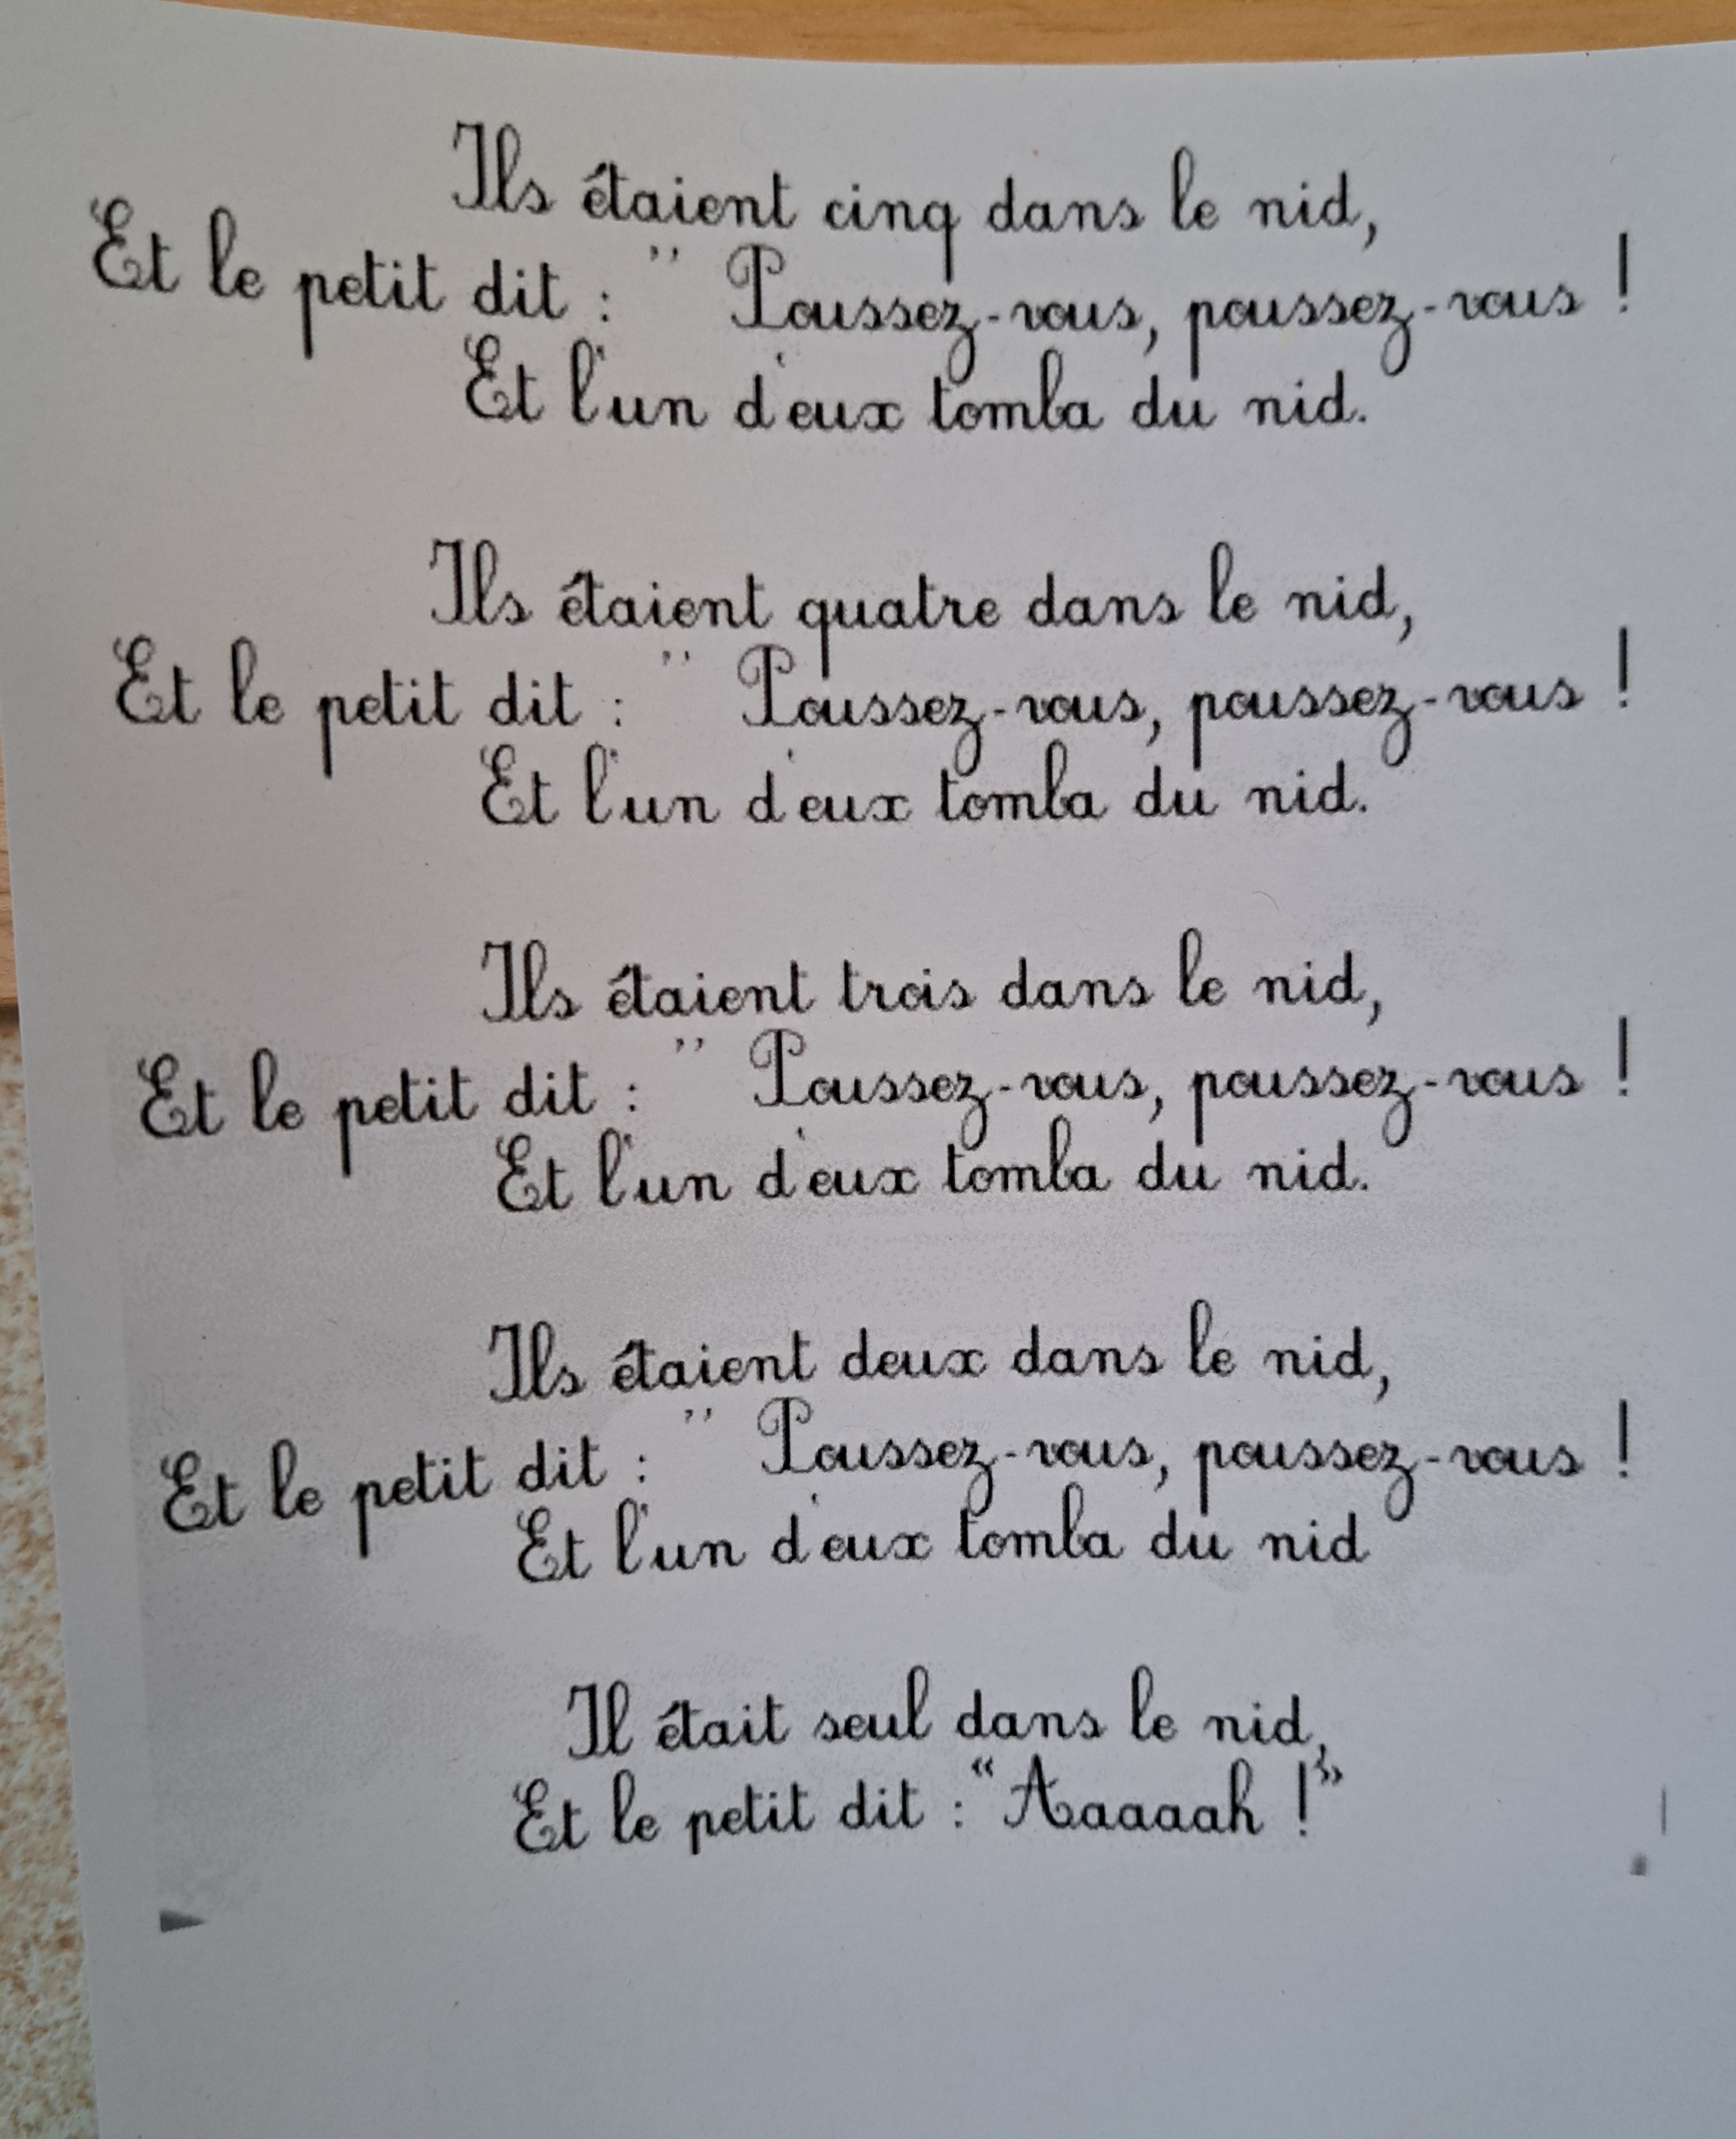 Ils étaient cinq dans le nid,
Et le petit dit : " Poussez-vous, poussez-vous !
Et l'un d'eux tomba du nid.
Ils étaient quatre dans le nid,
Et le petit dit : " Poussez-vous, poussez-vous !
Et l'un d'eux tomba du nid.
Ils étaient trois dans le nid,
Et le petit dit : " Poussez-vous, poussez-vous !
Et l'un d'eux tomba du nid.
Ils étaient deux dans le nid,
Et le petit dit : " Poussez-vous, poussez-vous !
Et l'un d'eux tomba du nid
Il était seul dans le nid,
Et le petit dit : “Aaaaah !”